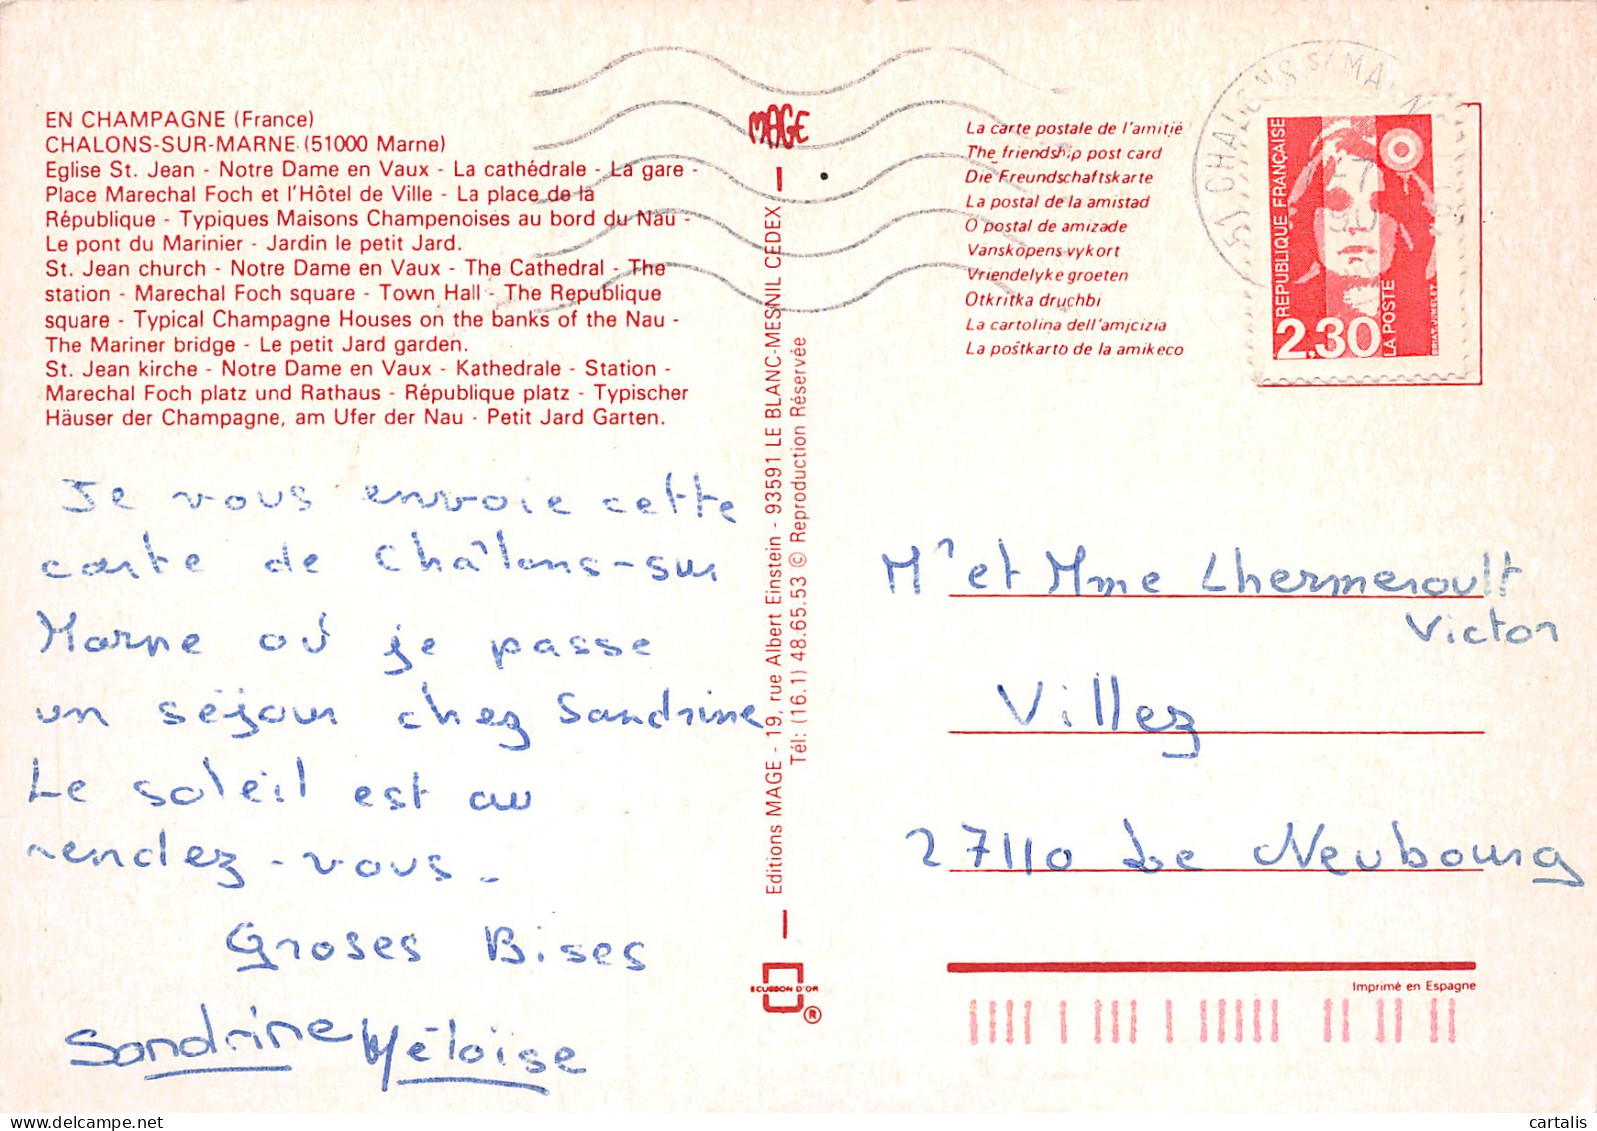 EN CHAMPAGNE (France)
CHALONS-SUR-MARNE (51000 Marne)
Eglise St. Jean - Notre Dame en Vaux - La cathédrale - La gare -
Place Marechal Foch et l'Hôtel de Ville - La place de la
République - Typiques Maisons Champenoises au bord du Nau -
Le pont du Marinier - Jardin le petit Jard.
St. Jean church - Notre Dame en Vaux - The Cathedral - The
station - Marechal Foch square - Town Hall - The Republique
square - Typical Champagne Houses on the banks of the Nau -
The Mariner bridge - Le petit Jard garden.
St. Jean kirche - Notre Dame en Vaux - Kathedrale - Station -
Marechal Foch platz und Rathaus - République platz - Typischer
Häuser der Champagne, am Ufer der Nau - Petit Jard Garten.
Je vous envoie cette
carte de Châlons-sur
Marne où je passe
un séjour chez Sandrine
Le soleil est au
rendez-vous.
Groses Bises
Sandrine Héloïse
MAGE
Editions MAGE - 19, rue Albert Einstein - 93591 LE BLANC-MESNIL CEDEX
Tél: (16.1) 48.65.53 © Reproduction Réservée
ECUSSON D'OR
®
La carte postale de l'amitié
The friendship post card
Die Freundschaftskarte
La postal de la amistad
O postal de amizade
Vanskopens vykort
Vriendelyke groeten
Otkritka druchbi
La cartolina dell'amicizia
La postkarto de la amikeco
51 CHALONS S/ MARNE
REPUBLIQUE FRANÇAISE
2,30
LA POSTE
Mr et Mme Lhermeroult
Victor
Villez
27110 Le Neubourg
Imprimé en Espagne
cartalis